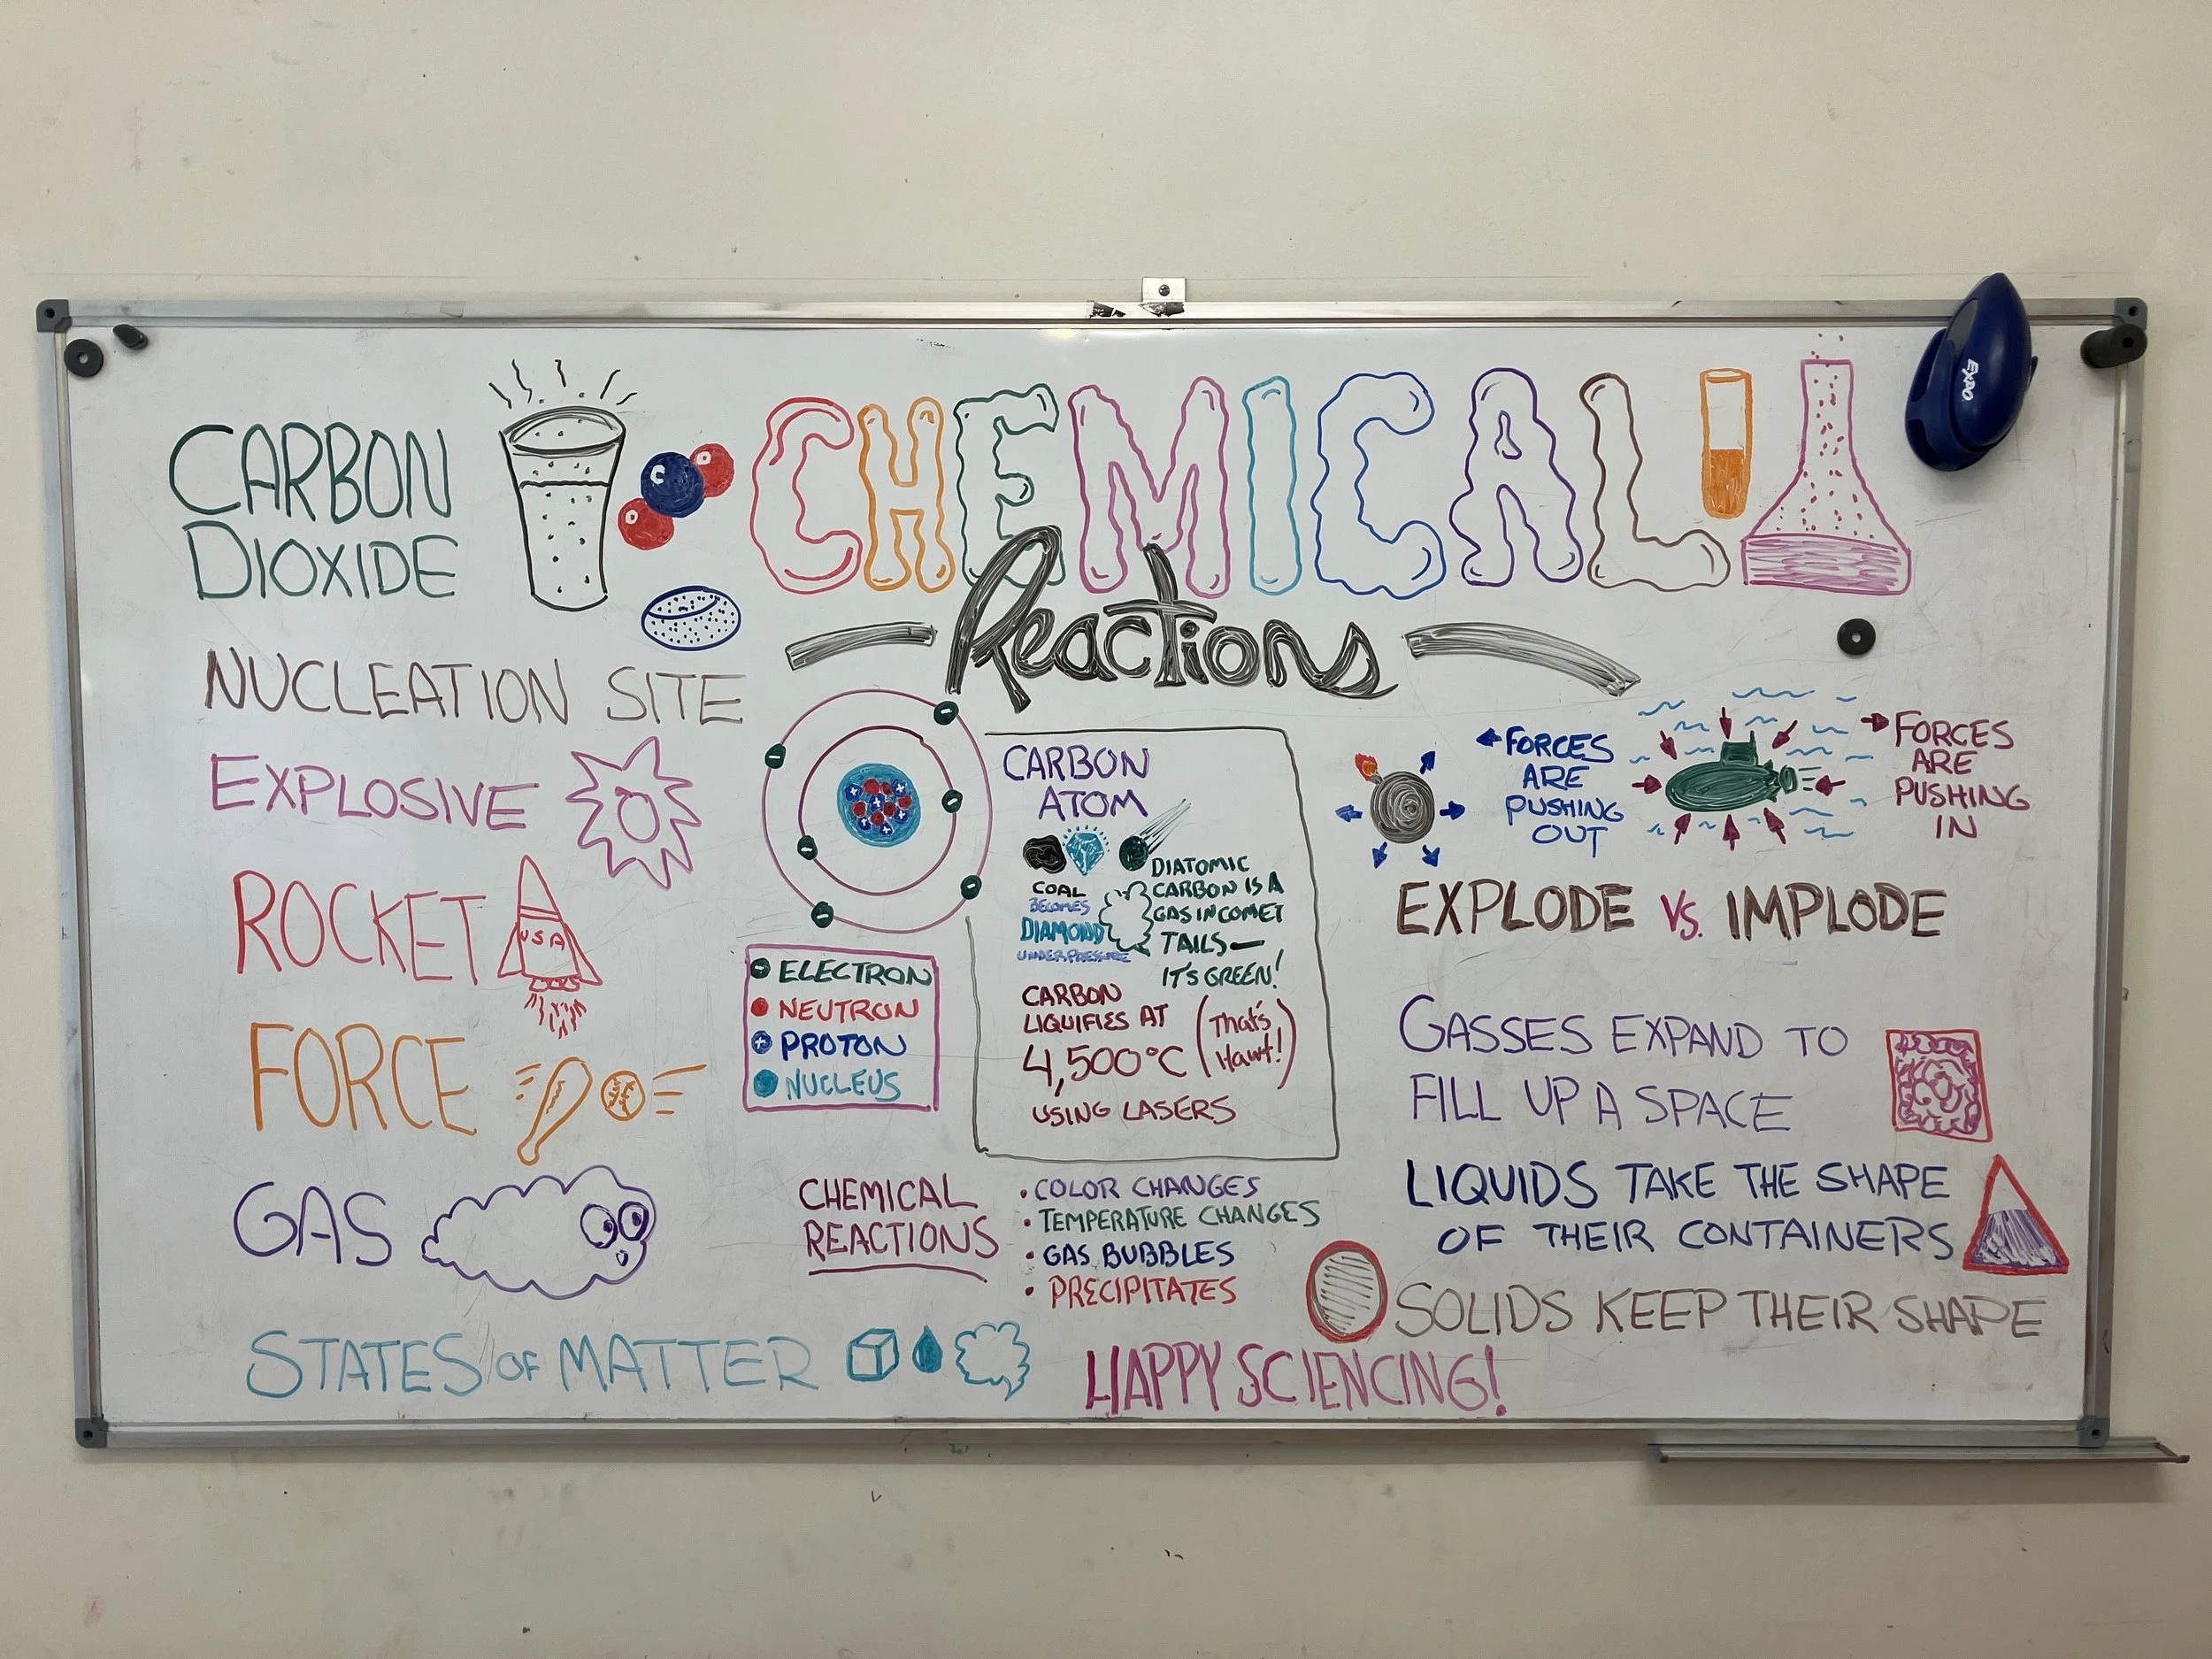 CHEMICAL
Reactions
EXPO
CARBON
DIOXIDE
C
O
O
NUCLEATION SITE
EXPLOSIVE
ROCKET
USA
FORCE
GAS
STATES OF MATTER
ELECTRON
NEUTRON
PROTON
NUCLEUS
CARBON
ATOM
COAL
BECOMES
DIAMOND
UNDER PRESSURE
DIATOMIC
CARBON IS A
GAS IN COMET
TAILS—
IT'S GREEN!
CARBON
LIQUIFIES AT
4,500°C
(That's
Hawt!)
USING LASERS
CHEMICAL
REACTIONS
• COLOR CHANGES
• TEMPERATURE CHANGES
• GAS BUBBLES
• PRECIPITATES
HAPPY SCIENCING!
FORCES
ARE
PUSHING
OUT
FORCES
ARE
PUSHING
IN
EXPLODE VS. IMPLODE
GASSES EXPAND TO
FILL UP A SPACE
LIQUIDS TAKE THE SHAPE
OF THEIR CONTAINERS
SOLIDS KEEP THEIR SHAPE